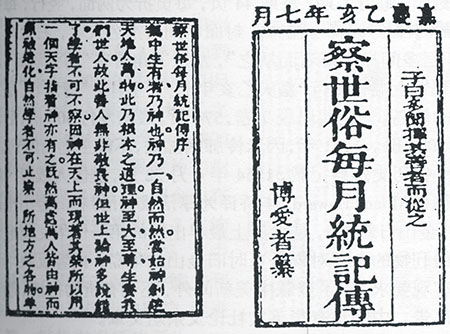 嘉慶乙亥年七月
子曰多聞擇其善者而從之
察世俗每月統記傳
博愛者纂
察世俗每月統記傳序
無中生有者乃神也神乃一自然而然當始神創造
天地人萬物此乃根本之道理神至大至尊生養我
們世人故此善人無非敬畏神但世上論神多說錯
了學者不可不察因神在天上而現著其榮所以用
一個天字指着神亦有之既然萬處萬人皆由神而
原被造化自然學者不可止察一所地方之各物單